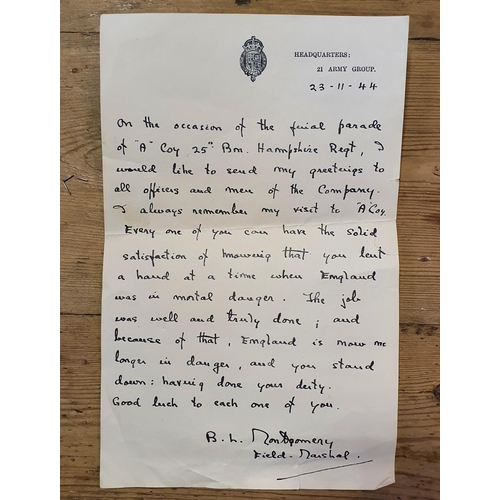 HEADQUARTERS:
21 ARMY GROUP.
23-11-44
On the occasion of the final parade
of "A" Coy 25th Bn. Hampshire Regt, I
would like to send my greetings to
all officers and men of the Company.
I always remember my visit to "A" Coy.
Every one of you can have the solid
satisfaction of knowing that you lent
a hand at a time when England
was in mortal danger. The job
was well and truly done; and
because of that, England is now no
longer in danger, and you stand
down: having done your duty.
Good luck to each one of you.
B. L. Montgomery
Field-Marshal.